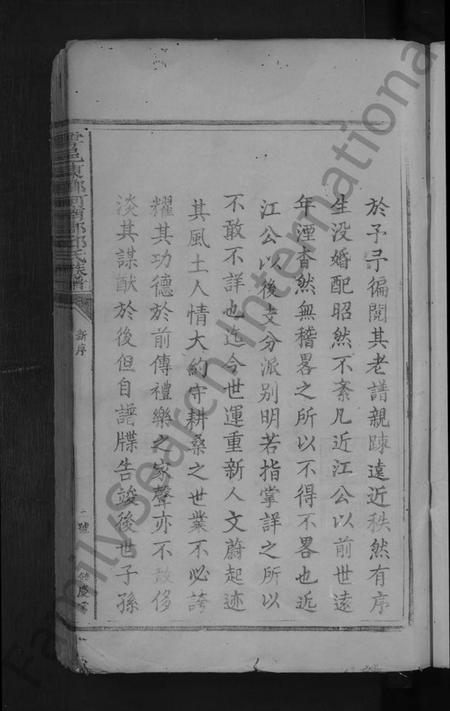 於予予徧閱其老譜親踈遠近秩然有序
生没婚配昭然不紊凡近江公以前世遠
年湮杳然無稽畧之所以不得不畧也近
江公以後支分派别明若指掌詳之所以
不敢不詳也迄今世運重新人文蔚起迹
其風土人情大約守耕桑之世業不必誇
耀其功德於前傳禮樂之家聲亦不敢侈
淡其謀猷於後但自譜牒告竣後世子孫
氏族譜
新序
號
FamilySearch International